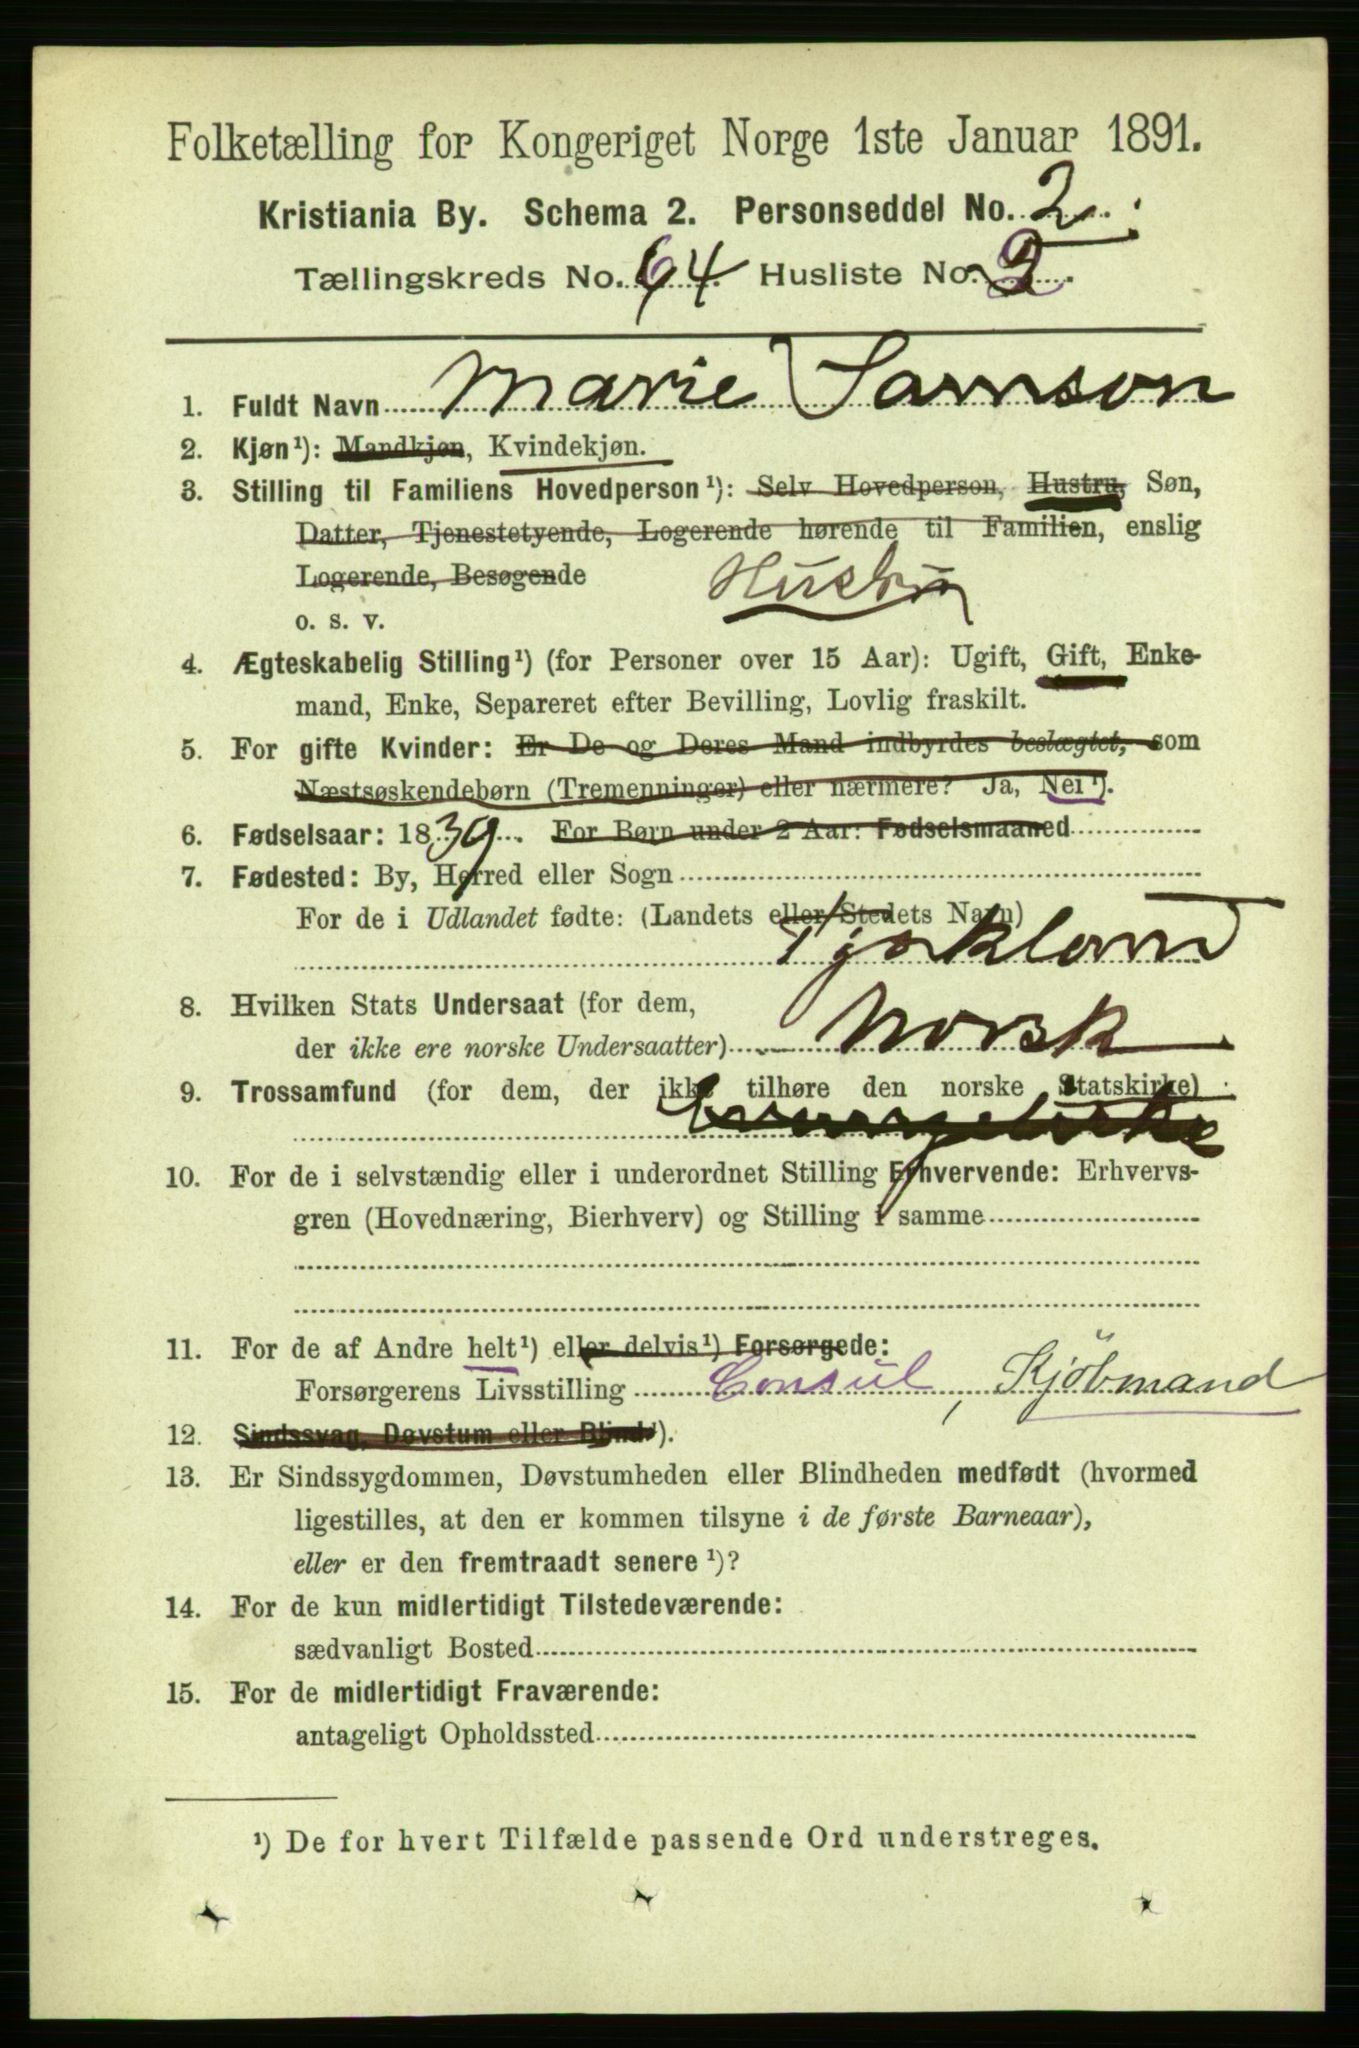 Folketælling for Kongeriget Norge 1ste Januar 1891.
Kristiania By. Schema 2. Personseddel No. 2.
Tællingskreds No. 64 Husliste No. 2.
1. Fuldt Navn Marie Samson
2. Kjøn¹): Mandkjøn, Kvindekjøn.
3. Stilling til Familiens Hovedperson¹): Selv Hovedperson, Hustru, Søn,
Datter, Tjenestetyende, Logerende hørende til Familien, enslig
Logerende, Besøgende Hustru
o. s. v.
4. Ægteskabelig Stilling¹) (for Personer over 15 Aar): Ugift, Gift, Enke-
mand, Enke, Separeret efter Bevilling, Lovlig fraskilt.
5. For gifte Kvinder: Er De og Deres Mand indbyrdes beslægtet, som
Næstsøskendebørn (Tremenninger) eller nærmere? Ja, Nei¹).
6. Fødselsaar: 1839. For Børn under 2 Aar: Fødselsmaaned
7. Fødested: By, Herred eller Sogn
For de i Udlandet fødte: (Landets eller Stedets Navn)
Tyskland
8. Hvilken Stats Undersaat (for dem,
der ikke ere norske Undersaatter) Norsk
9. Trossamfund (for dem, der ikke tilhøre den norske Statskirke)
10. For de i selvstændig eller i underordnet Stilling Erhvervende: Erhvervs-
gren (Hovednæring, Bierhverv) og Stilling i samme
11. For de af Andre helt¹) eller delvis¹) Forsørgede:
Forsørgerens Livsstilling Consul, Kjöbmand
12. Sindssvag, Døvstum eller Blind¹).
13. Er Sindssygdommen, Døvstumheden eller Blindheden medfødt (hvormed
ligestilles, at den er kommen tilsyne i de første Barneaar),
eller er den fremtraadt senere¹)?
14. For de kun midlertidigt Tilstedeværende:
sædvanligt Bosted
15. For de midlertidigt Fraværende:
antageligt Opholdssted
¹) De for hvert Tilfælde passende Ord understreges.